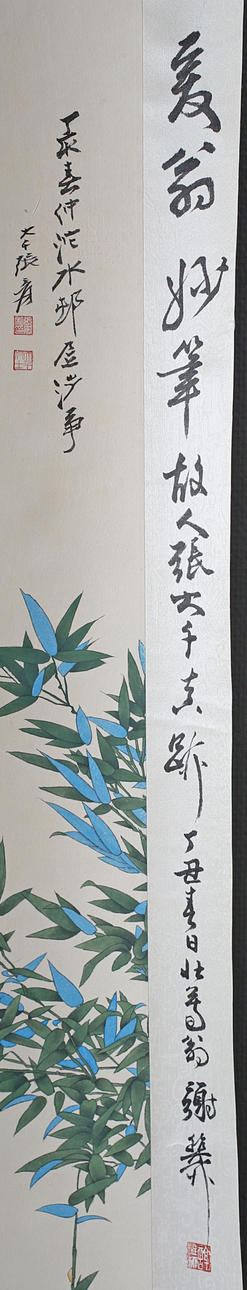 爰翁妙筆故人張大千真跡丁丑春日壯暮翁謝稚
丁亥春仲沱水邨居涉事
大千張爰